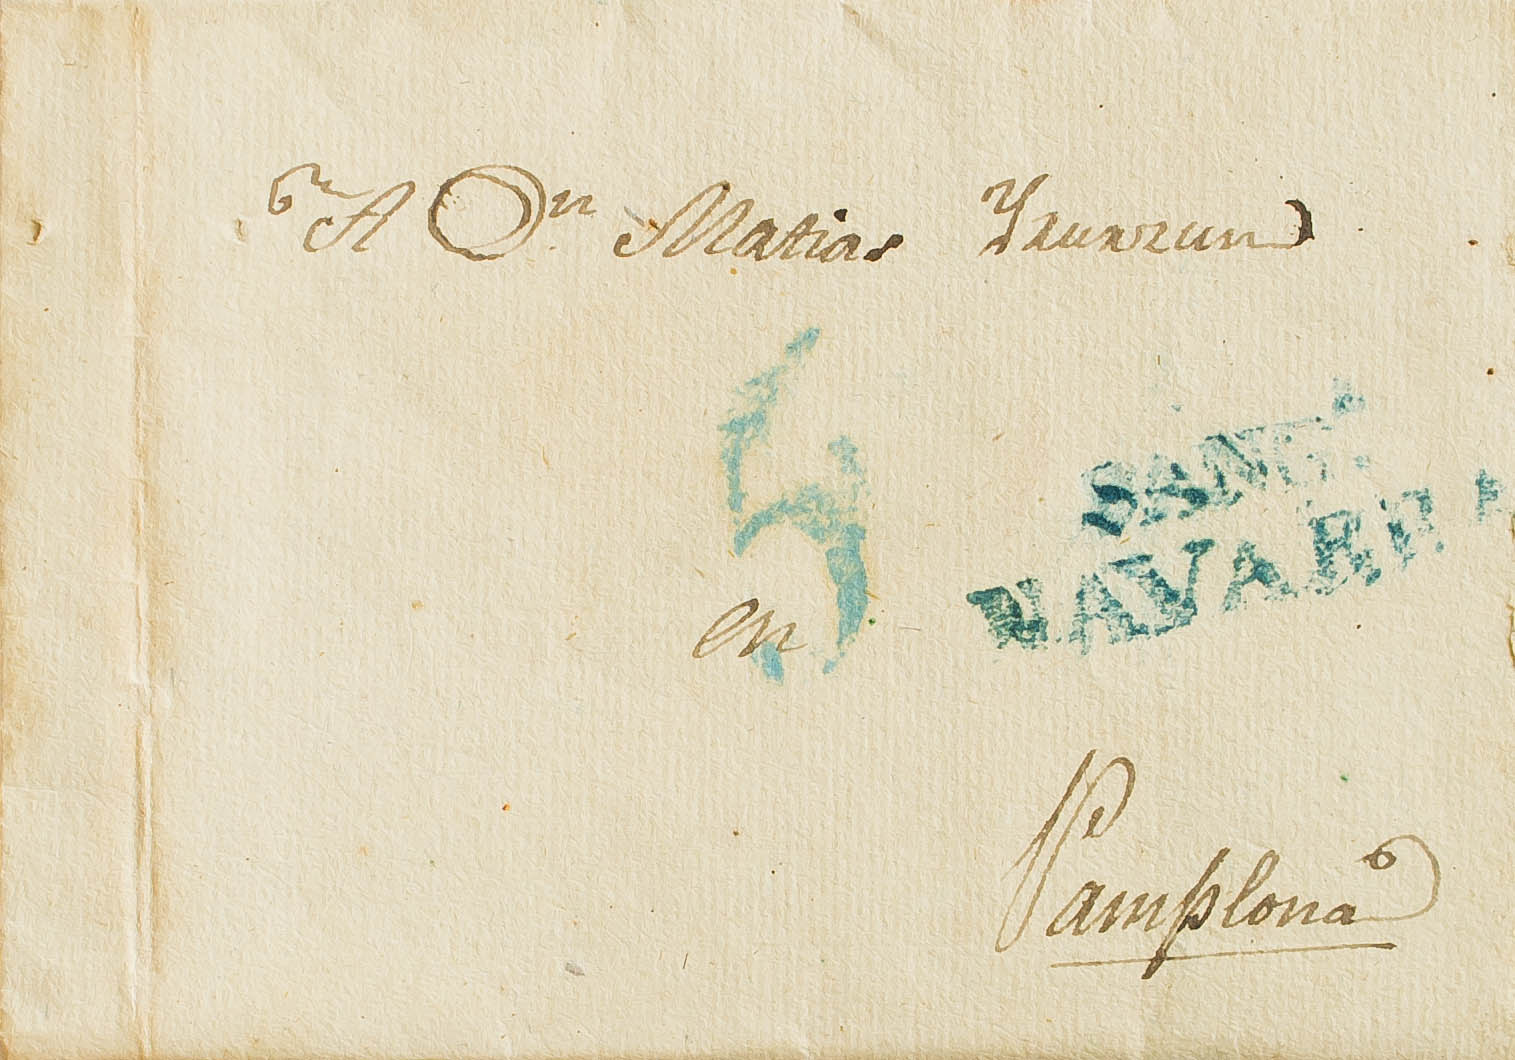 A Dⁿ Matias Yrurzun
5
SANG.ᴬ
NAVARRA
en
Pamplona